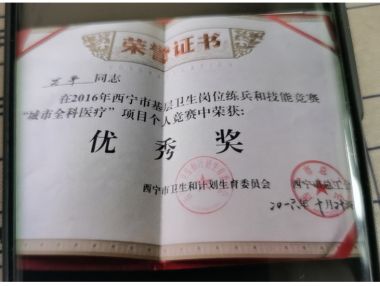 荣誉证书
同志
在2016年西宁市基层卫生岗位练兵和技能竞赛
“城市全科医疗”项目个人竞赛中荣获:
优秀奖
西宁市卫生和计划生育委员会 西宁市总工会